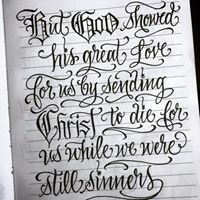 But GOD showed
his great Love
for us by sending
Christ to die for
us while we were
still sinners